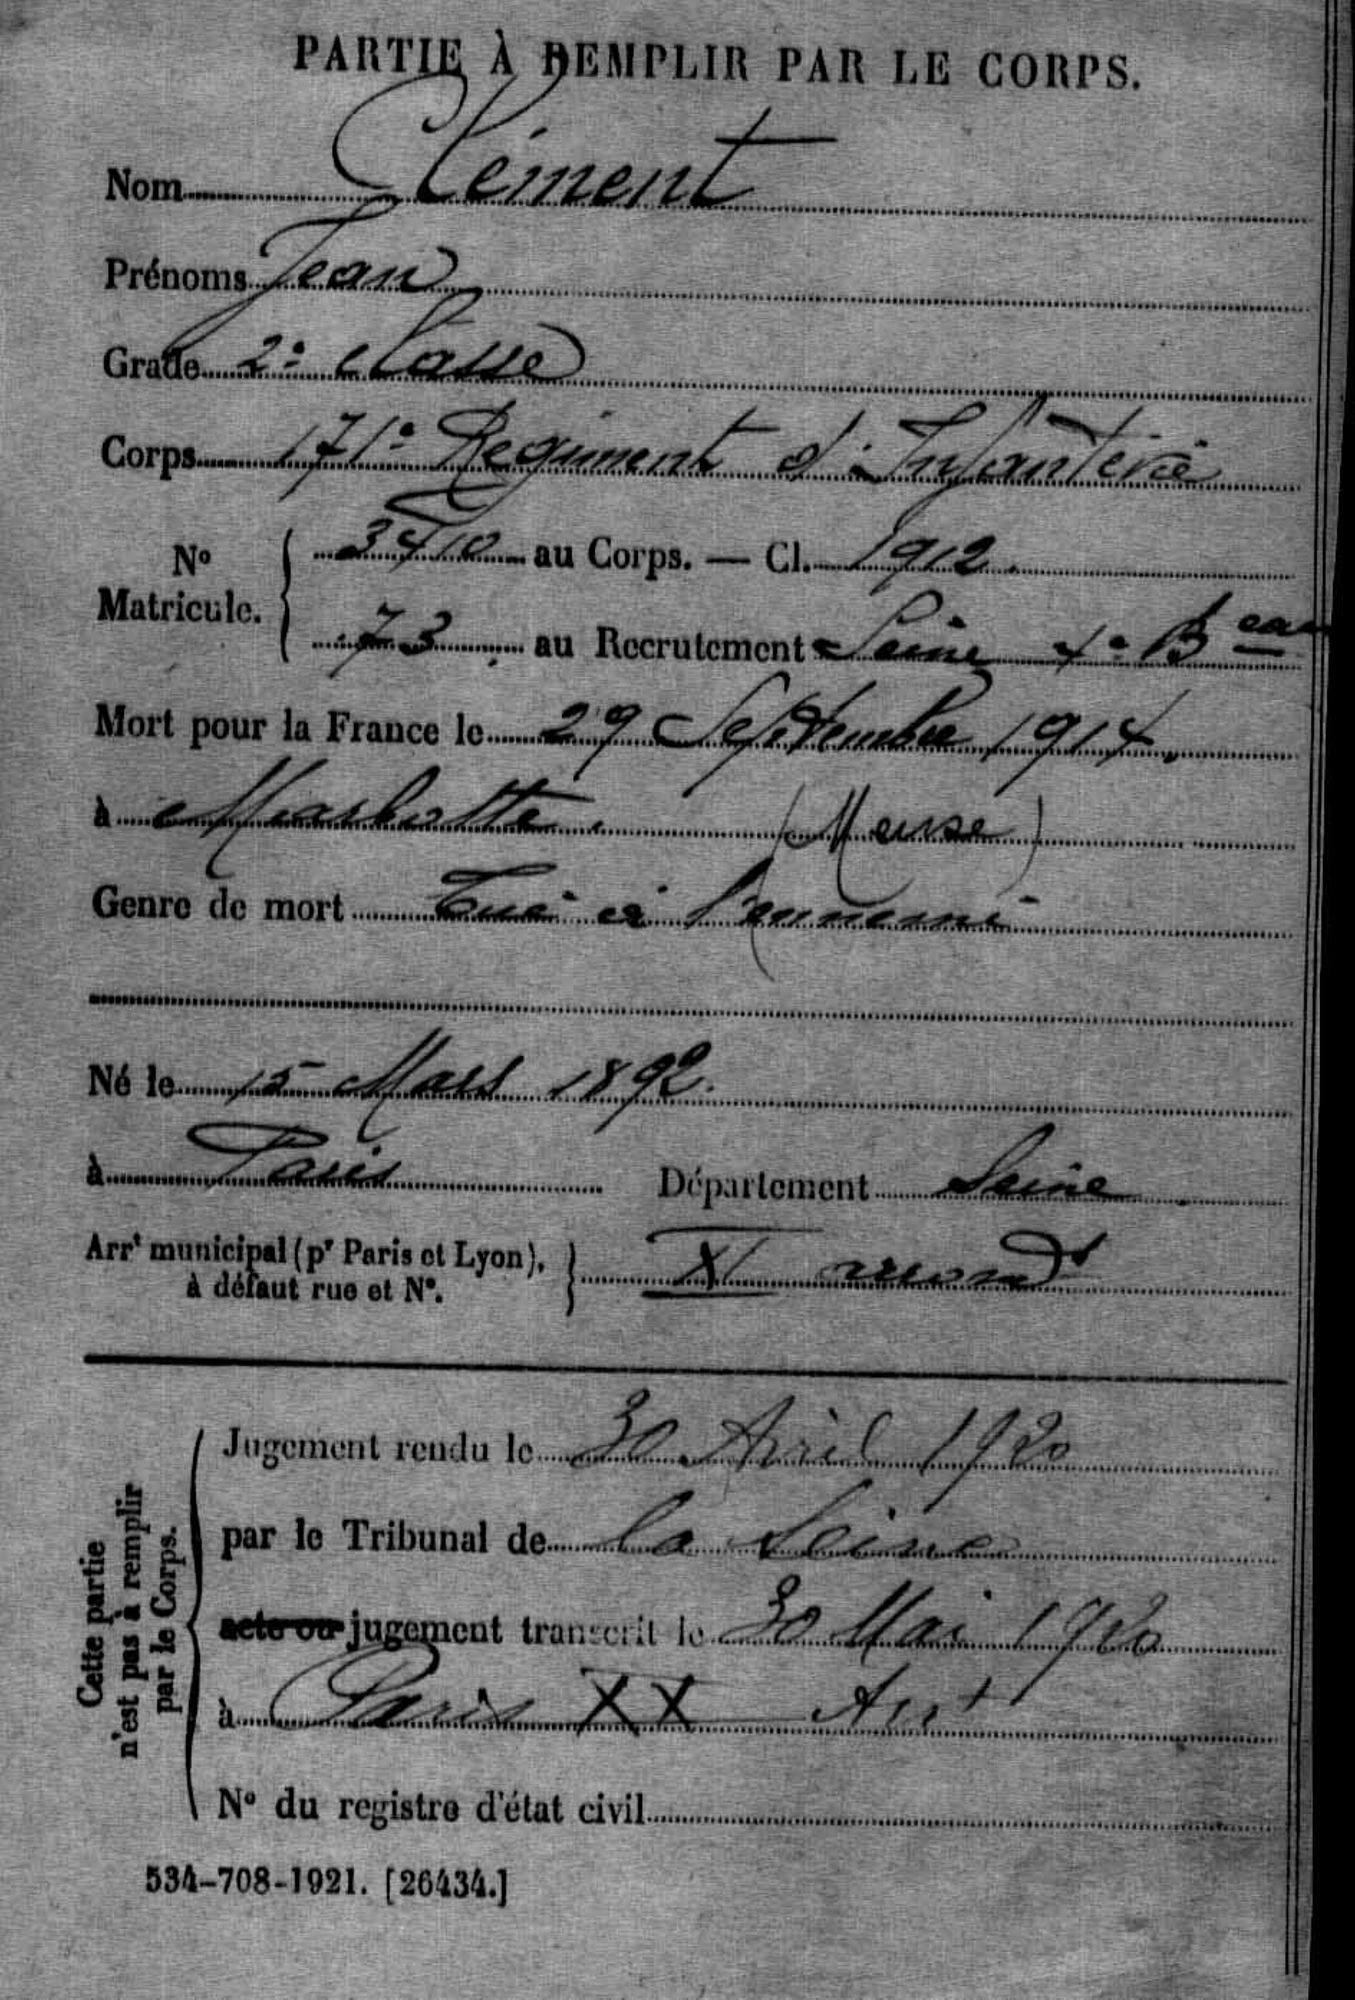 PARTIE À REMPLIR PAR LE CORPS.
Nom Clément
Prénoms Jean
Grade 2e classe
Corps 171e Régiment d'Infanterie
No Matricule. 3410 au Corps. — Cl. 1912.
73 au Recrutement Seine 4e Beau
Mort pour la France le 29 Septembre 1914.
à Marbotte. (Meuse)
Genre de mort Tué à l'ennemi
Né le 15 Mars 1892.
à Paris Département Seine
Arrt municipal (pr Paris et Lyon), XI arrondt
à défaut rue et No.
Cette partie n'est pas à remplir par le Corps.
Jugement rendu le 30 Avril 1920
par le Tribunal de la Seine
acte ou jugement transcrit le 30 Mai 1920
à Paris XX Arrt
No du registre d'état civil
534-708-1921. [26434.]